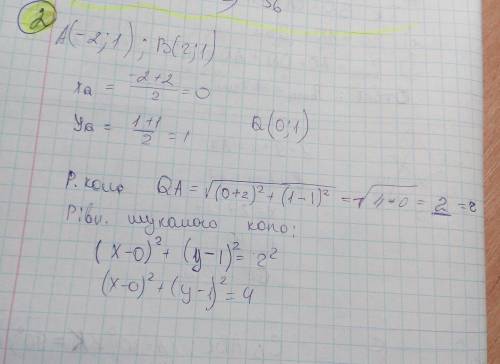 36
2
A(-2;1); B(2;1)
xa = (-2+2)/2 = 0
ya = (1+1)/2 = 1 Q(0;1)
QA = √((0+2)² + (1-1)²) = √(4-0) = 2 = 2
Рівн. шуканого кола:
(x-0)² + (y-1)² = 2²
(x-0)² + (y-1)² = 4